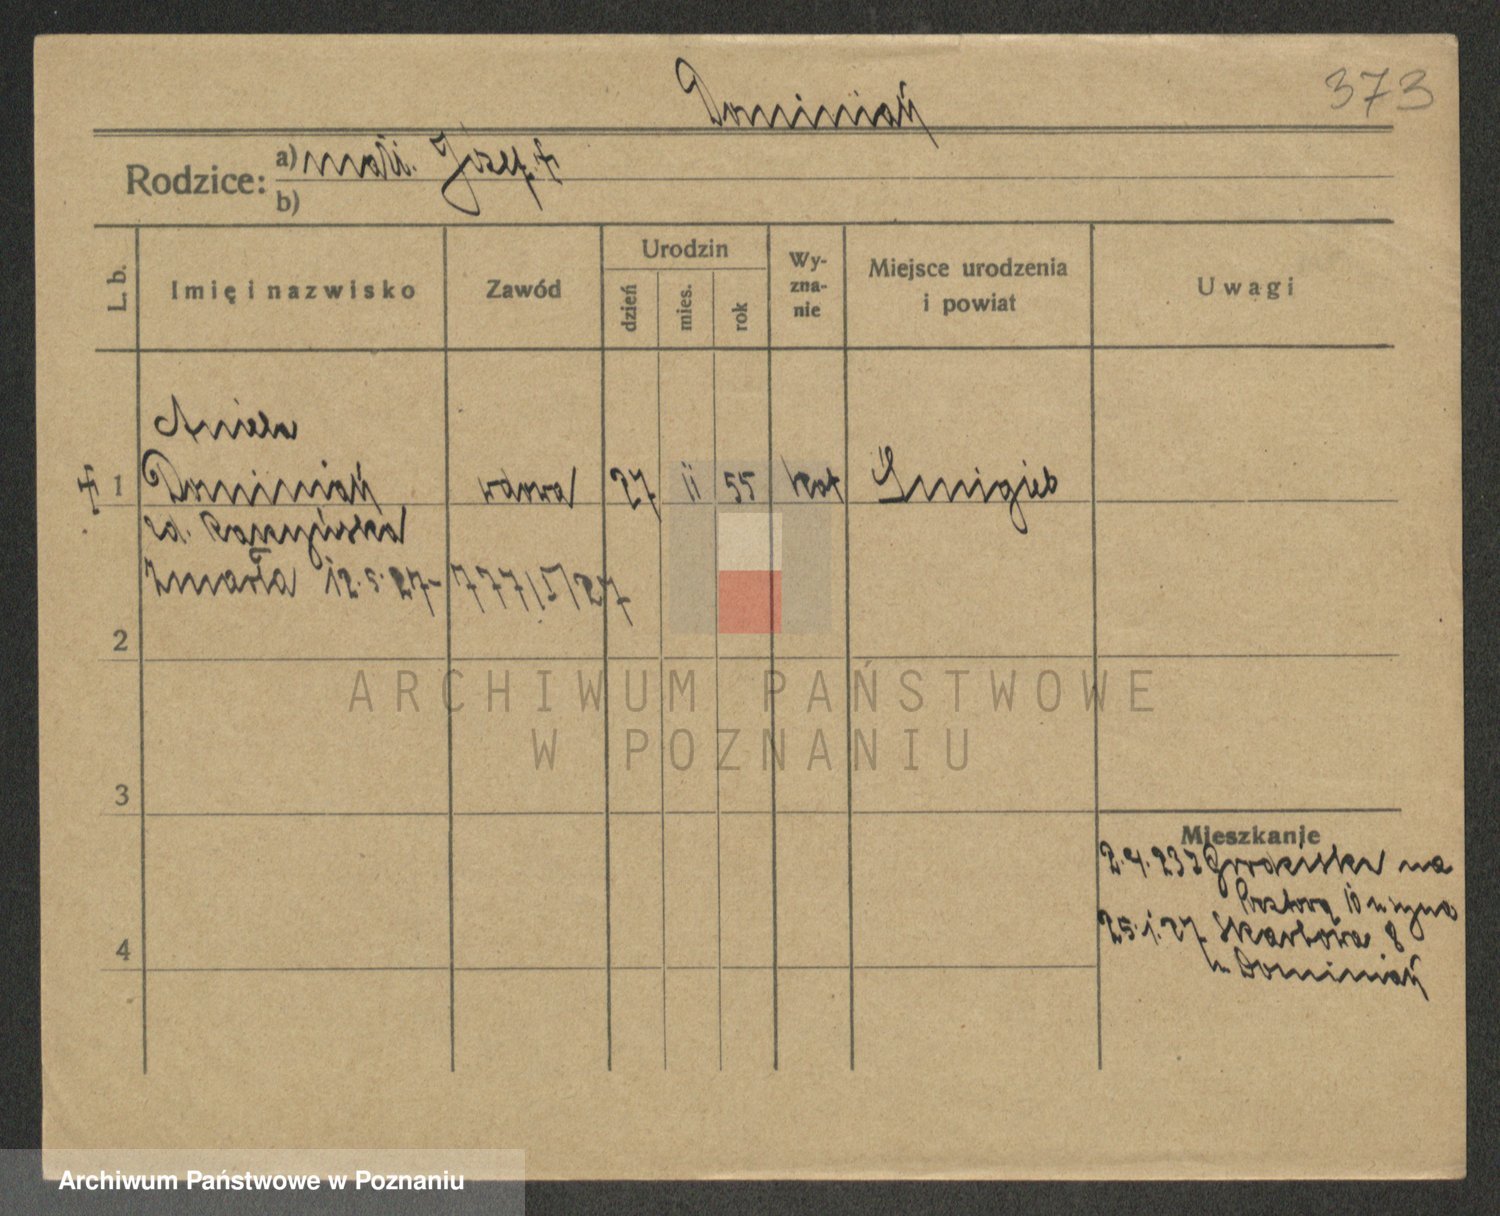 373
Dominiak
Rodzice: a) małż. Józef †
b)
L. b.
Imię i nazwisko
Zawód
Urodzin
dzień
mies.
rok
Wy-
zna-
nie
Miejsce urodzenia
i powiat
Uwagi
Aniela
† 1 Dominiak wdowa 27 II 55 kat Śmigiel
zd.
zmarła 12.5.27 - 777/I/27
2
3
4
Mieszkanie
2.4.23 z Grodziska na
10 u syna
25.1.27 Skarbowa 8
u Dominiak
ARCHIWUM PAŃSTWOWE
W POZNANIU
Archiwum Państwowe w Poznaniu